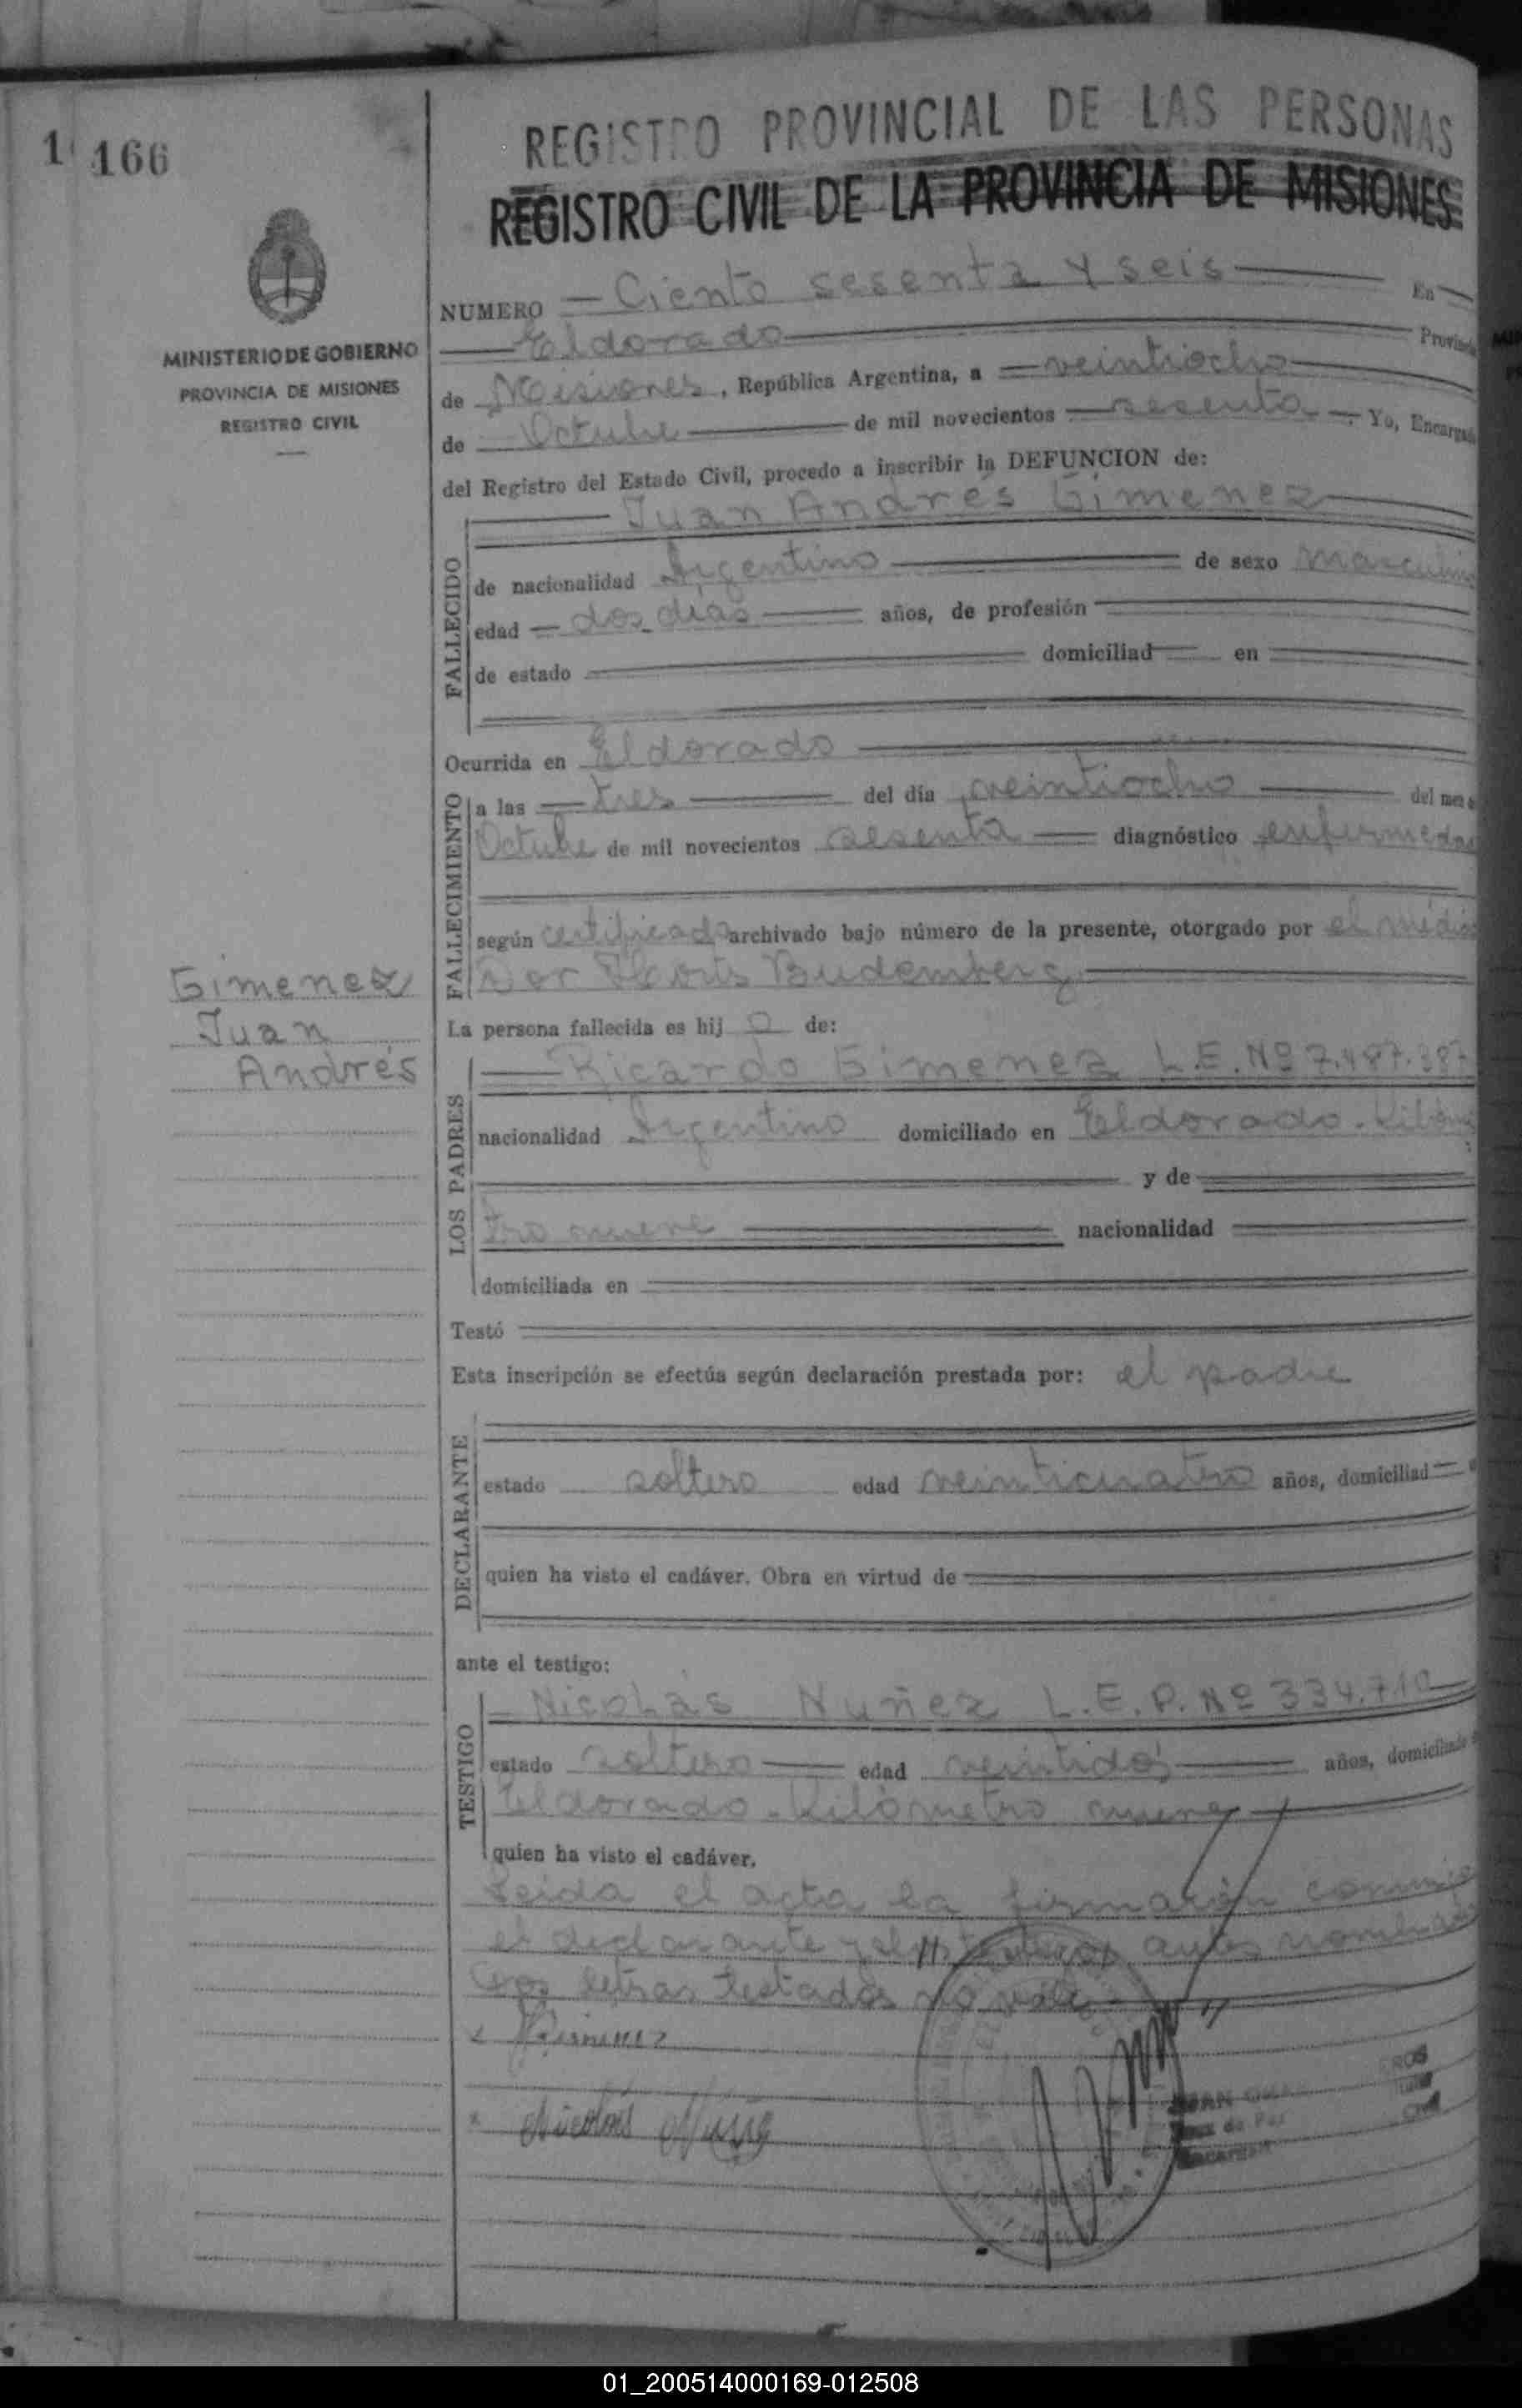 166
REGISTRO PROVINCIAL DE LAS PERSONAS
REGISTRO CIVIL DE LA PROVINCIA DE MISIONES
MINISTERIO DE GOBIERNO
PROVINCIA DE MISIONES
REGISTRO CIVIL
NUMERO Ciento sesenta y seis En
Eldorado Provincia
de Misiones, República Argentina, a veintiocho
de Octubre de mil novecientos sesenta. Yo, Encargado
del Registro del Estado Civil, procedo a inscribir la DEFUNCION de:
Juan Andrés Gimenez
FALLECIDO
de nacionalidad Argentino de sexo masculino
edad dos días años, de profesión
de estado domiciliad en
Ocurrida en Eldorado
FALLECIMIENTO
a las tres del día veintiocho del mes
Octubre de mil novecientos sesenta diagnóstico enfermedad
según certificado archivado bajo número de la presente, otorgado por el médico
Budemberg
Gimenez
Juan
Andrés
La persona fallecida es hij o de:
LOS PADRES
Ricardo Gimenez L.E. Nº 7.487.387
nacionalidad Argentino domiciliado en Eldorado. Kilóme
y de
tro nueve nacionalidad
domiciliada en
Testó
Esta inscripción se efectúa según declaración prestada por: el padre
DECLARANTE
estado soltero edad veinticuatro años, domiciliad
quien ha visto el cadáver. Obra en virtud de
ante el testigo:
TESTIGO
Nicolás Nuñez L.E.P. Nº 334.710
estado soltero edad veintidós años, domiciliado
Eldorado. Kilómetro nueve
quien ha visto el cadáver.
Leida el acta la firmarón conmigo
el declarante y el testigo antes nombrado
Dos letras testadas no vale
Gimenez
Nicolás Nuñez
JUAN
Juez de Paz
Encargado
Civil
01_200514000169-012508